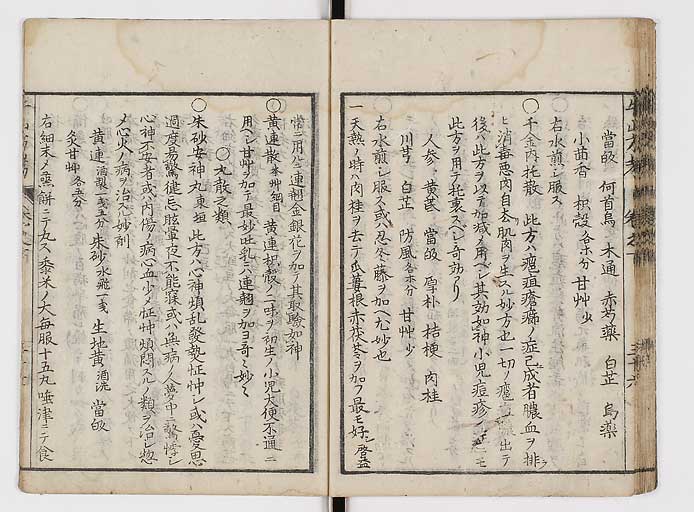 當皈 何首烏 木通 赤芍薬 白芷 烏薬
小茴香 枳殻各ホ分 甘艸少
右水煎シ服ス
○千金内托散 此方ハ癰疽瘡癤ノ症已成者膿血ヲ排
ヒ消毒悪肉自去肌肉ヲ生スル妙方也一切ノ癰 出テ
後ハ此方ヲ以テ加减ノ用ヘシ其効如神小児痘疹ノ モ
此方ヲ用テ托裏スヘシ奇効アリ
人参 黄芪 當皈 厚朴 桔梗 肉桂
川芎 白芷 防風各ホ分 甘艸少
右水煎シ服ス或ハ忍冬藤ヲ加ヘ尤妙也
一天熱ノ時ハ肉桂ヲ去テ瓜蔞根赤茯苓ヲ加フ最モ好シ
常ニ用ルニ連翹金銀花ヲ加フ其取驗如神
○黄連散本艸綱目 黄連枳殻ノ二味ヲ初生ノ小児大便不通ニ
用ヘシ甘艸ヲ加テ最妙吐乳ニ連翹ヲ加ヨ奇々妙々
○丸散之類
○朱砂安神丸東垣 此方ハ心神煩乱發熱怔忡シ或ハ憂思
過度易驚健忘眩暈夜不能寐或ハ無病ノ人夢中ニ驚悸シ
心神不安者或ハ内傷ノ病心血少メ怔忡煩悶スルノ類ヲ治シ惣
メ心火ノ病ヲ治スル妙剤
黄連酒製一戔五分 朱砂水飛一戔 生地黄酒洗 當皈
炙甘艸各五分
右細末ノ蒸餅ニテ丸ス黍米ノ大毎服十五丸唾津ニテ食